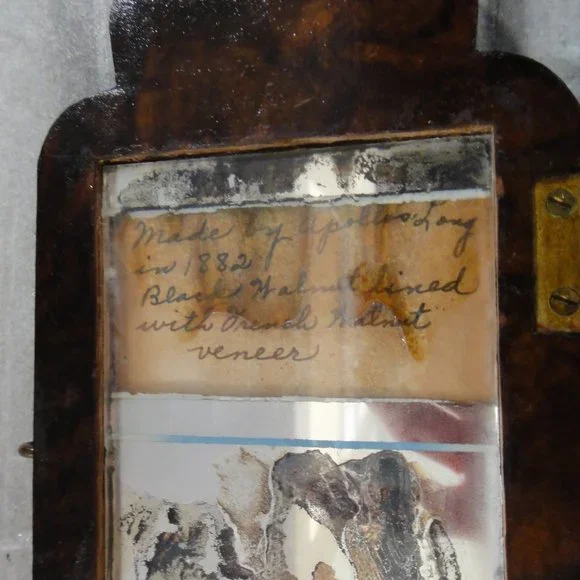 Made by Apollos Long
in 1882
Black Walnut lined
with French Walnut
veneer